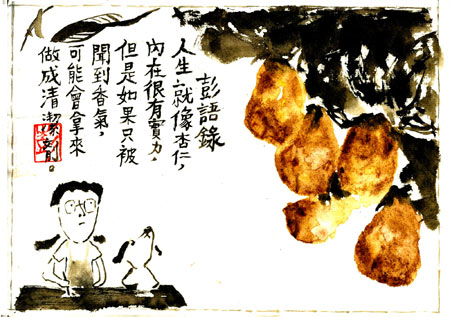 彭語錄
人生就像杏仁，
內在很有實力，
但是如果只被
聞到香氣，
可能會拿來
做成清潔劑。